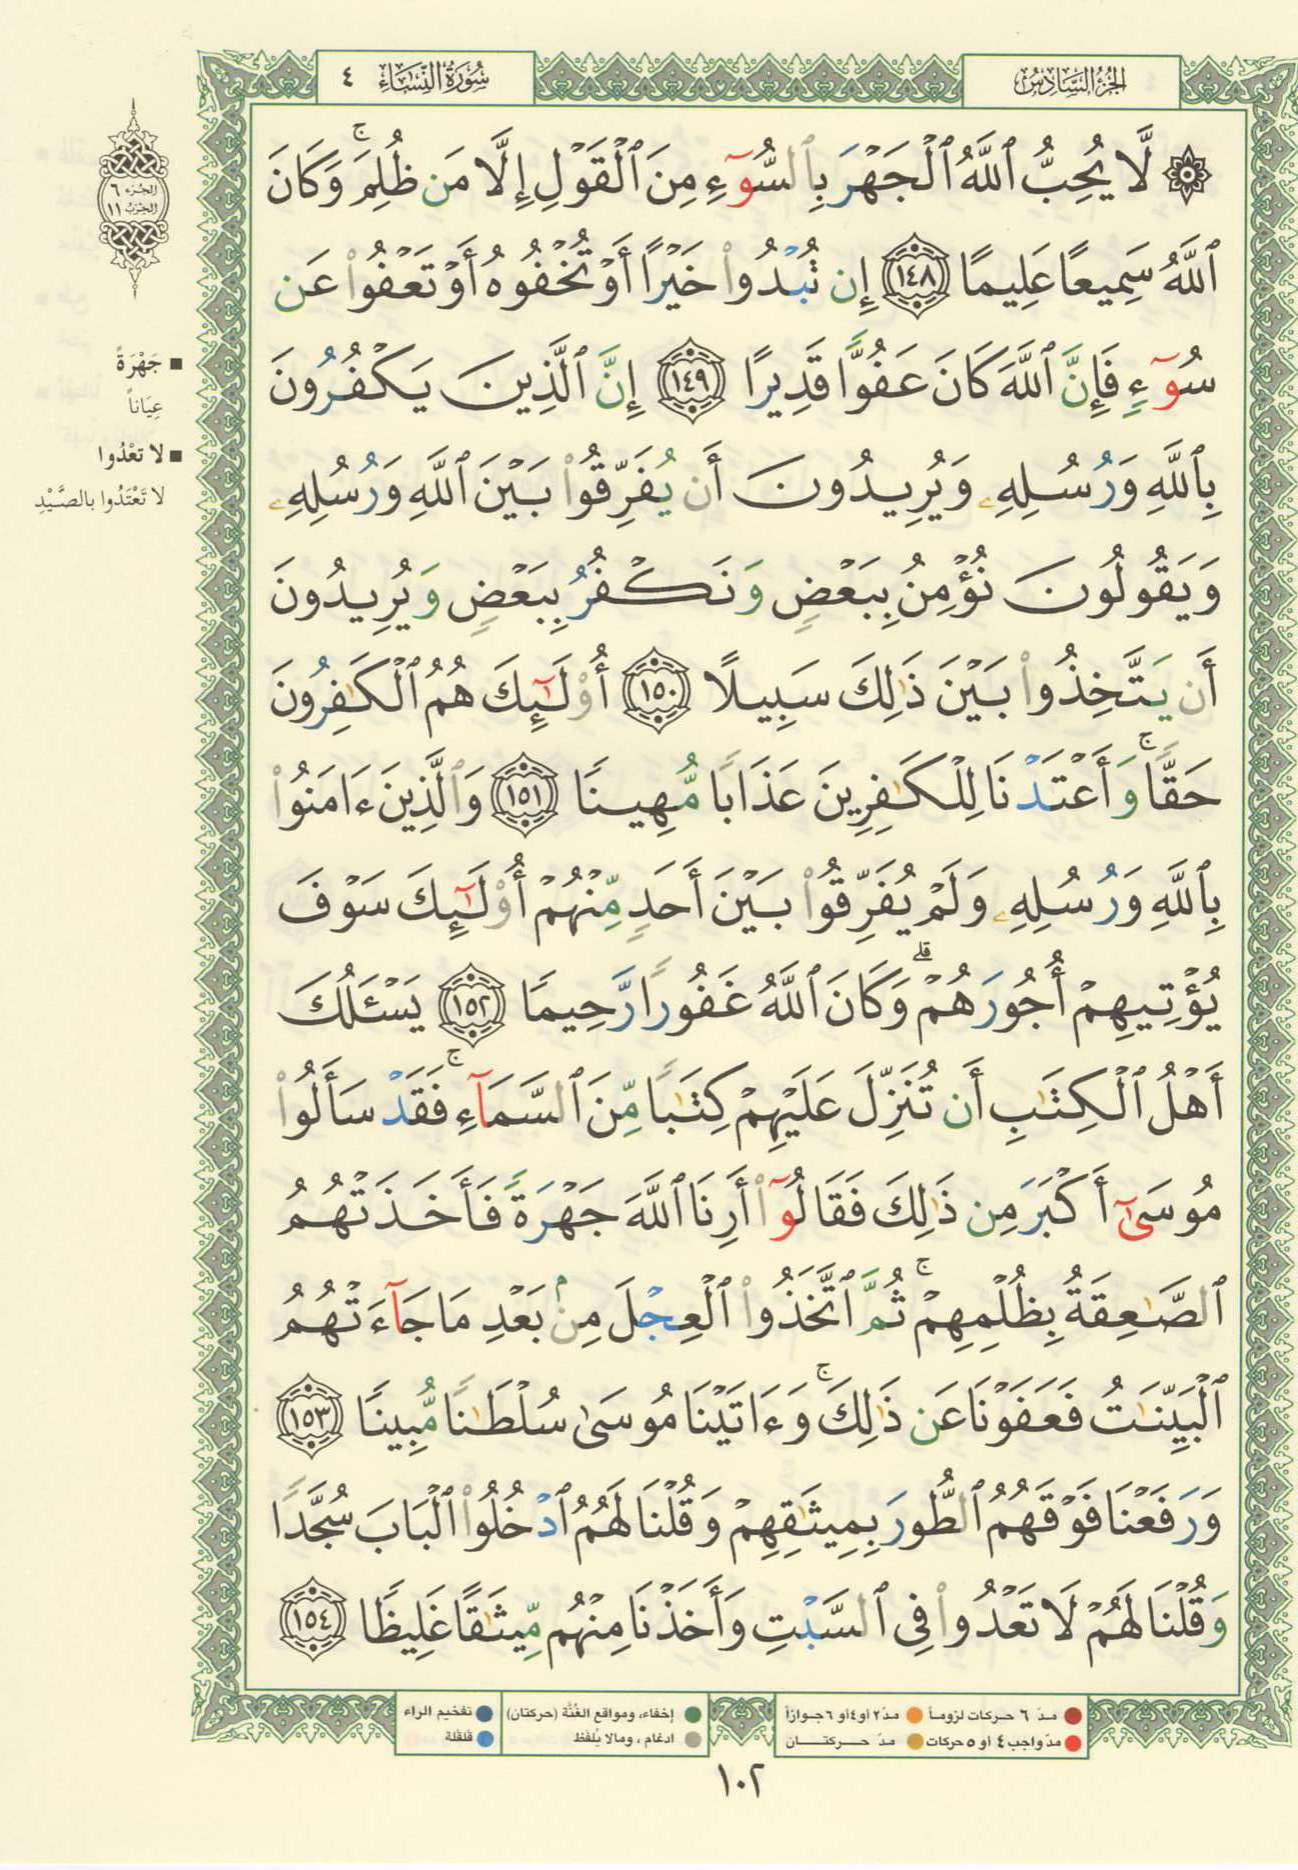 الجزء السادس
سورة النساء ٤
۞ لَّا يُحِبُّ ٱللَّهُ ٱلْجَهْرَ بِٱلسُّوٓءِ مِنَ ٱلْقَوْلِ إِلَّا مَن ظُلِمَ ۚ وَكَانَ
ٱللَّهُ سَمِيعًا عَلِيمًا ١٤٨ إِن تُبْدُوا۟ خَيْرًا أَوْ تُخْفُوهُ أَوْ تَعْفُوا۟ عَن
سُوٓءٍ فَإِنَّ ٱللَّهَ كَانَ عَفُوًّا قَدِيرًا ١٤٩ إِنَّ ٱلَّذِينَ يَكْفُرُونَ
بِٱللَّهِ وَرُسُلِهِۦ وَيُرِيدُونَ أَن يُفَرِّقُوا۟ بَيْنَ ٱللَّهِ وَرُسُلِهِۦ
وَيَقُولُونَ نُؤْمِنُ بِبَعْضٍ وَنَكْفُرُ بِبَعْضٍ وَيُرِيدُونَ
أَن يَتَّخِذُوا۟ بَيْنَ ذَٰلِكَ سَبِيلًا ١٥٠ أُو۟لَـٰٓئِكَ هُمُ ٱلْكَـٰفِرُونَ
حَقًّا ۚ وَأَعْتَدْنَا لِلْكَـٰفِرِينَ عَذَابًا مُّهِينًا ١٥١ وَٱلَّذِينَ ءَامَنُوا۟
بِٱللَّهِ وَرُسُلِهِۦ وَلَمْ يُفَرِّقُوا۟ بَيْنَ أَحَدٍ مِّنْهُمْ أُو۟لَـٰٓئِكَ سَوْفَ
يُؤْتِيهِمْ أُجُورَهُمْ ۗ وَكَانَ ٱللَّهُ غَفُورًا رَّحِيمًا ١٥٢ يَسْـَٔلُكَ
أَهْلُ ٱلْكِتَـٰبِ أَن تُنَزِّلَ عَلَيْهِمْ كِتَـٰبًا مِّنَ ٱلسَّمَآءِ ۚ فَقَدْ سَأَلُوا۟
مُوسَىٰٓ أَكْبَرَ مِن ذَٰلِكَ فَقَالُوٓا۟ أَرِنَا ٱللَّهَ جَهْرَةً فَأَخَذَتْهُمُ
ٱلصَّـٰعِقَةُ بِظُلْمِهِمْ ۚ ثُمَّ ٱتَّخَذُوا۟ ٱلْعِجْلَ مِنۢ بَعْدِ مَا جَآءَتْهُمُ
ٱلْبَيِّنَـٰتُ فَعَفَوْنَا عَن ذَٰلِكَ ۚ وَءَاتَيْنَا مُوسَىٰ سُلْطَـٰنًا مُّبِينًا ١٥٣
وَرَفَعْنَا فَوْقَهُمُ ٱلطُّورَ بِمِيثَـٰقِهِمْ وَقُلْنَا لَهُمُ ٱدْخُلُوا۟ ٱلْبَابَ سُجَّدًا
وَقُلْنَا لَهُمْ لَا تَعْدُوا۟ فِى ٱلسَّبْتِ وَأَخَذْنَا مِنْهُم مِّيثَـٰقًا غَلِيظًا ١٥٤
الجزء ٦
الحزب ١١
■ جَهْرَةً
عِيَاناً
■ لا تَعْدُوا
لا تَعْتَدُوا بالصَّيْدِ
مدّ ٦ حركات لزوماً ● مدّ ٢ أو ٤ أو ٦ جوازاً
مدّ واجب ٤ أو ٥ حركات ● مدّ حركتان
إخفاء، ومواقع الغُنَّة (حركتان)
ادغام، ومالا يُلفَظ
تفخيم الراء
قلقلة
١٠٢